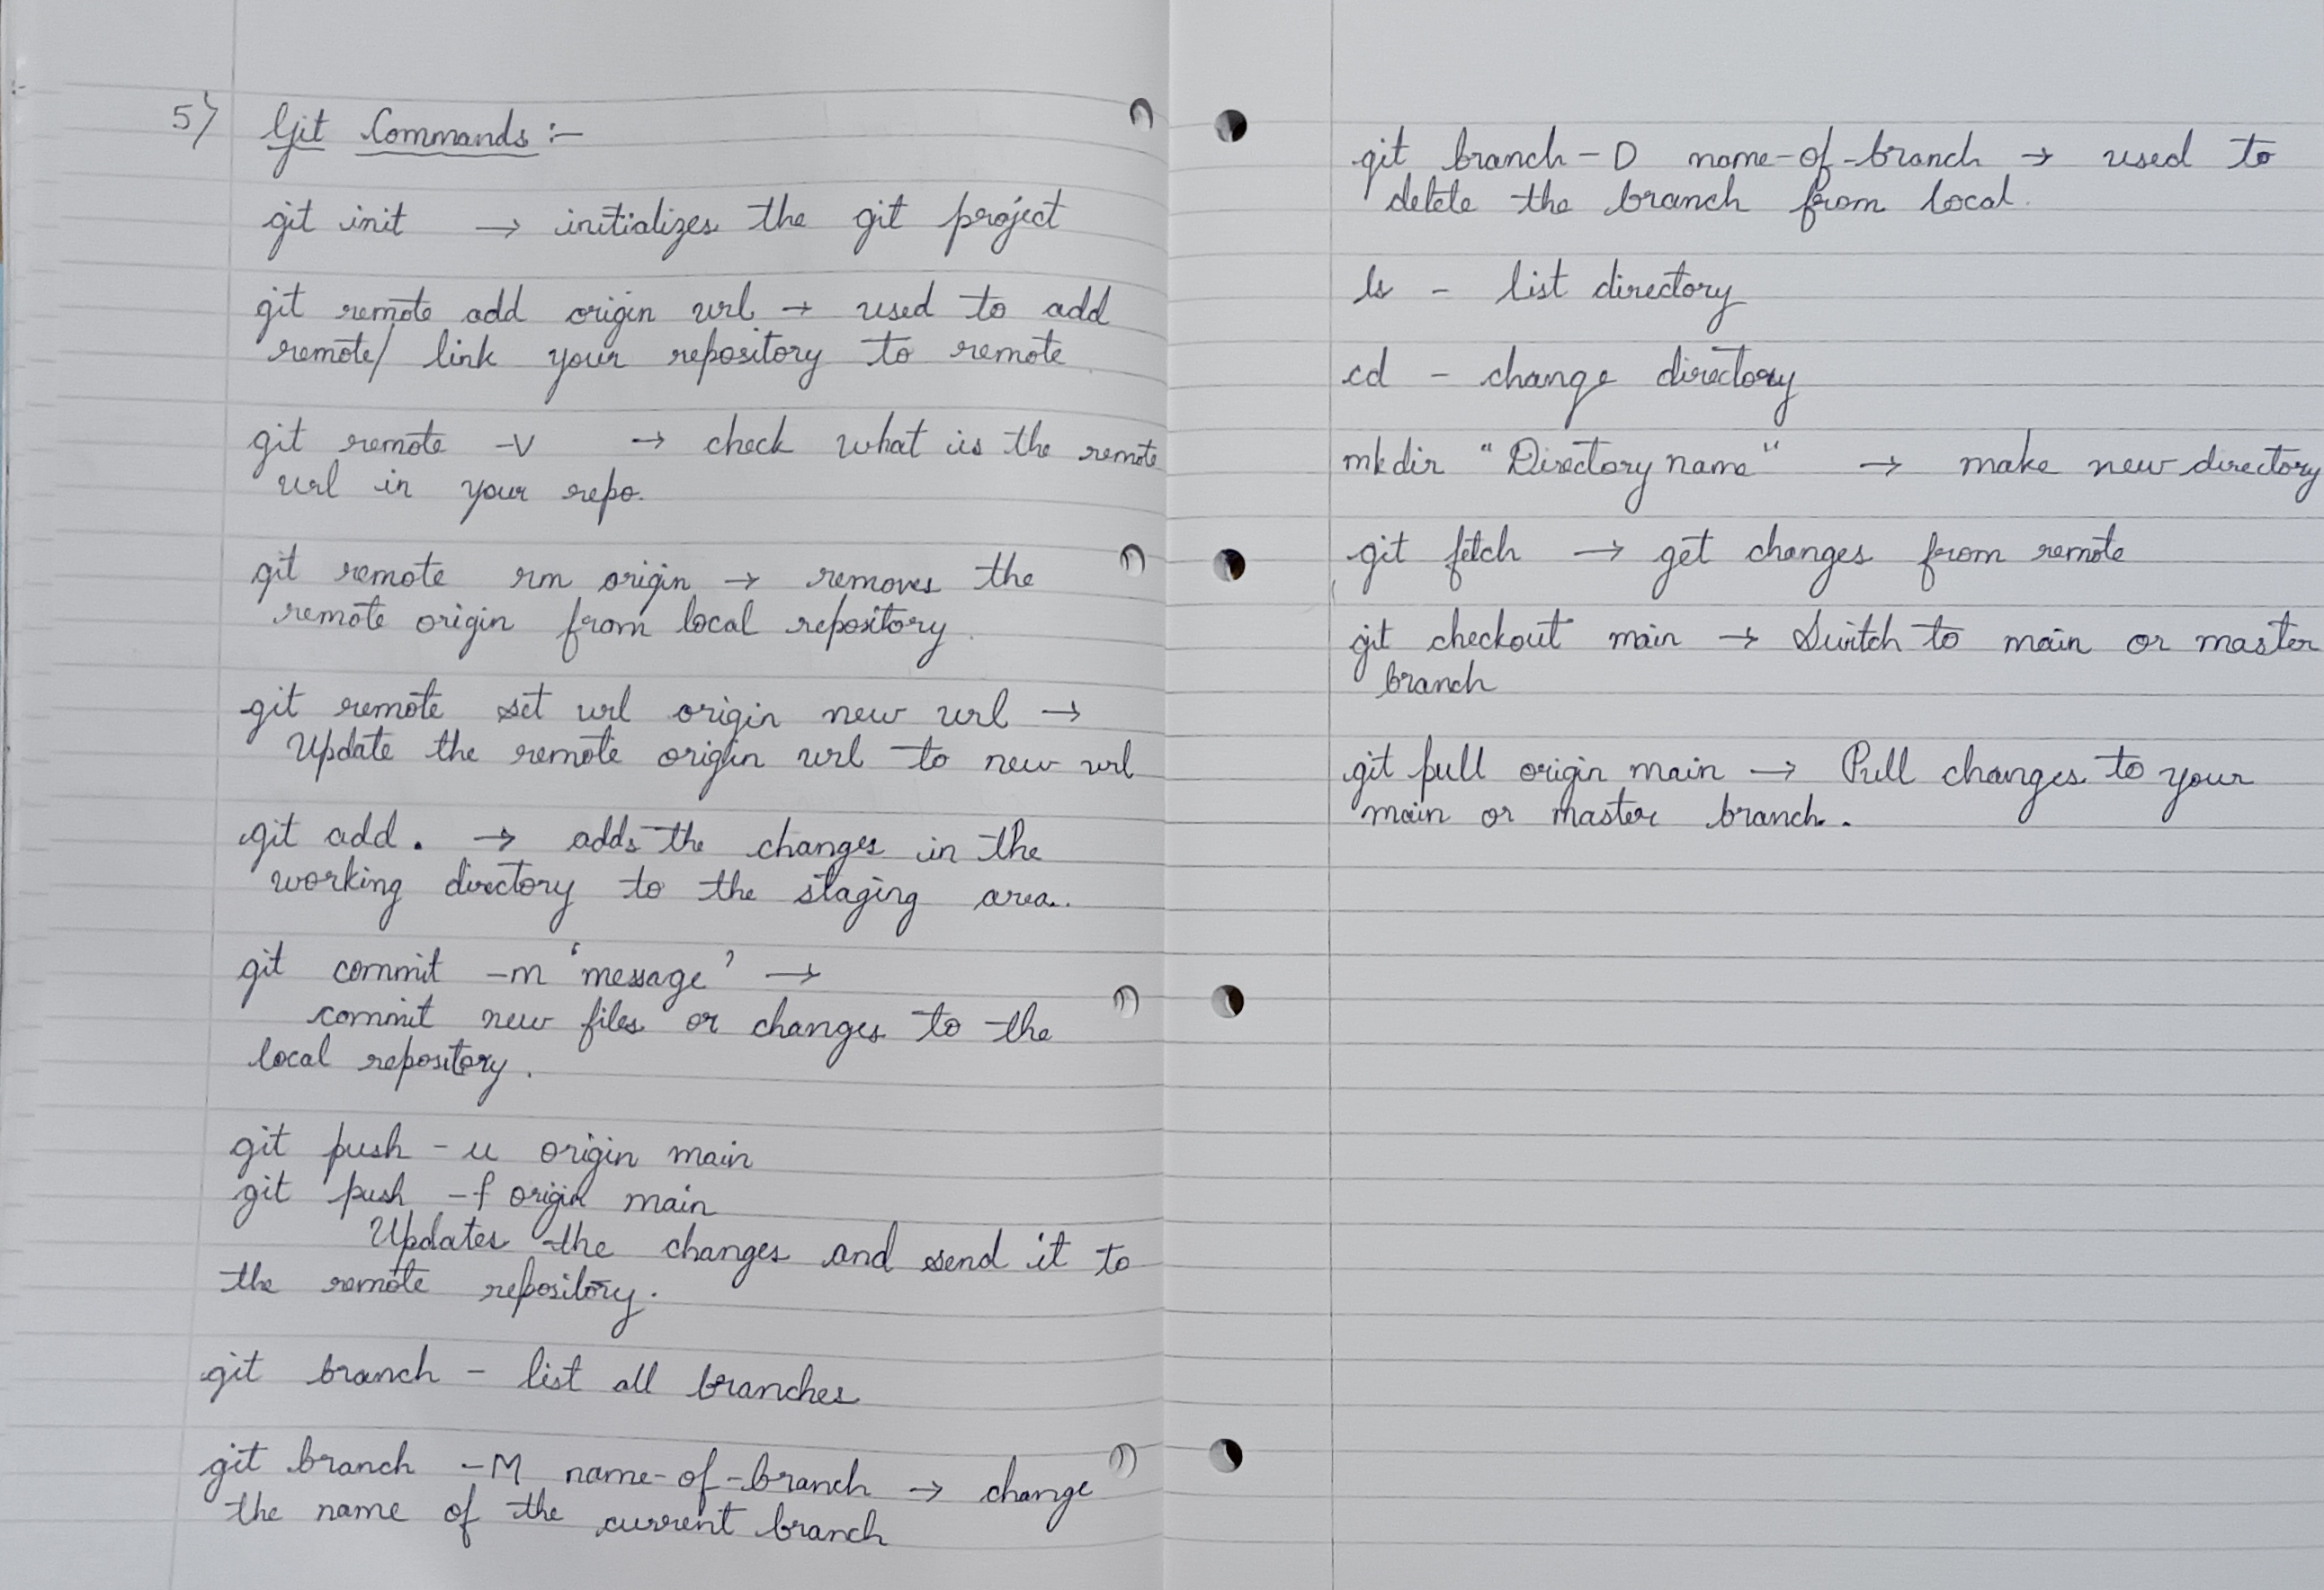 5) Git Commands :-
git init → initializes the git project
git remote add origin url → used to add
remote/ link your repository to remote
git remote -v → check what is the remote
url in your repo.
git remote rm origin → removes the
remote origin from local repository.
git remote set url origin new url →
Update the remote origin url to new url
git add . → adds the changes in the
working directory to the staging area.
git commit -m 'message' →
commit new files or changes to the
local repository.
git push -u origin main
git push -f origin main
Updates the changes and send it to
the remote repository.
git branch - list all branches
git branch -M name-of-branch → change
the name of the current branch
git branch -D name-of-branch → used to
delete the branch from local.
ls - list directory
cd - change directory
mkdir "Directory name" → make new directory
git fetch → get changes from remote
git checkout main → Switch to main or master
branch
git pull origin main → Pull changes to your
main or master branch.